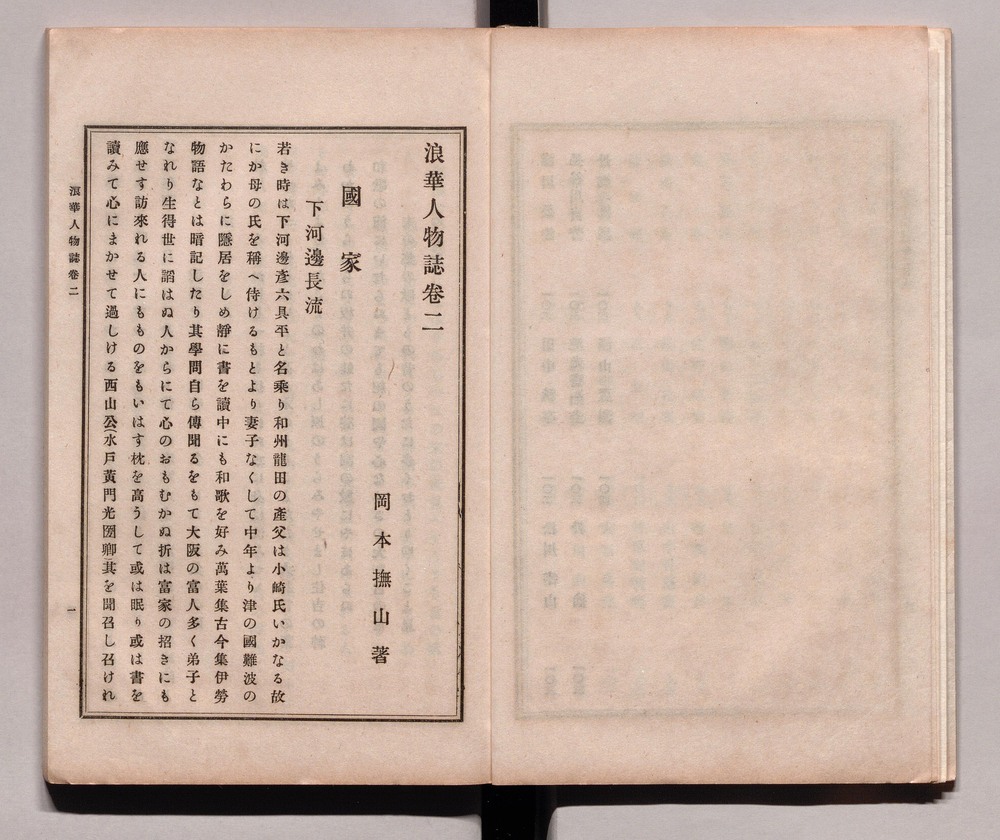 浪華人物誌卷二
岡本撫山著
國家
下河邊長流
若き時は下河邊彥六具平と名乘り和州龍田の產父は小崎氏いかなる故
にか母の氏を稱へ侍けるもとより妻子なくして中年より津の國難波の
かたわらに隱居をしめ靜に書を讀中にも和歌を好み萬葉集古今集伊勢
物語なとは暗記したり其學問自ら傳聞るをもて大阪の富人多く弟子と
なれり生得世に謟はぬ人からにて心のおもむかぬ折は富家の招きにも
應せす訪來れる人にもものをもいはす枕を高うして或は眠り或は書を
讀みて心にまかせて過しける西山公(水戶黃門光圀卿)其を聞召し召けれ
浪華人物誌卷二
一